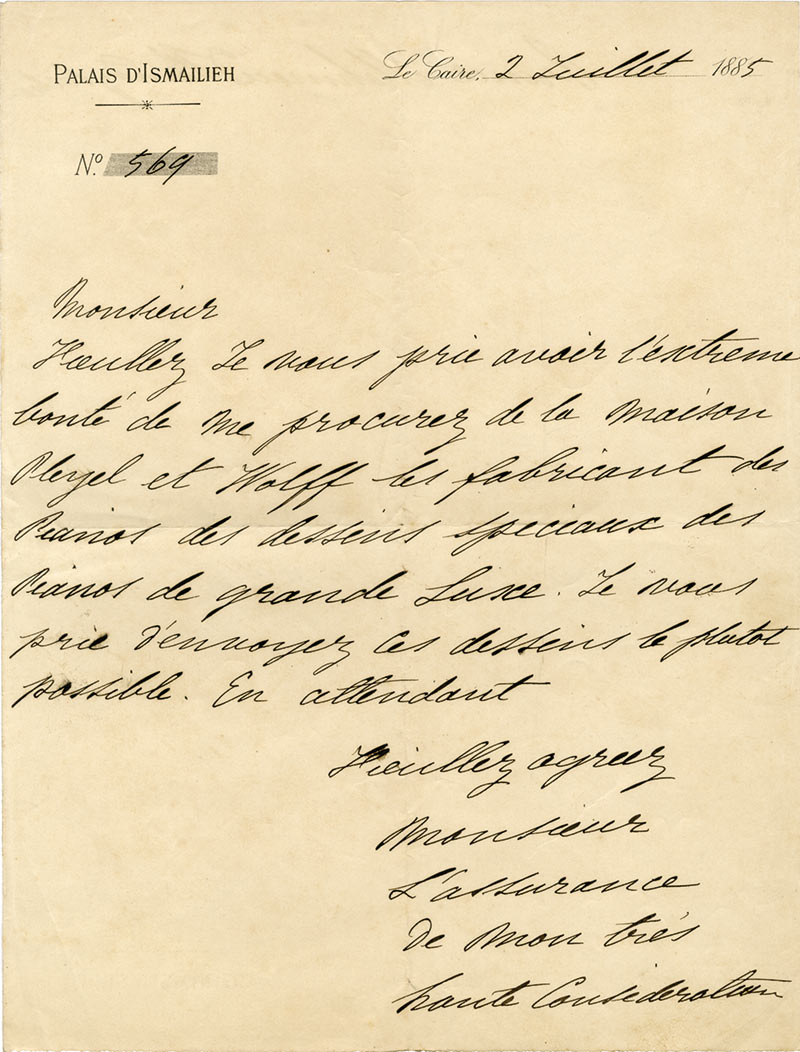 PALAIS D'ISMAILIEH
Le Caire, 2 Juillet 1885
N.º 569
Monsieur
Veullez Je vous prie avoir l'extreme
bonté de me procurez de la Maison
Pleyel et Wolff les fabricant des
Pianos des dessins speciaux des
Pianos de grande Luxe. Je vous
prie d'envoyez ces dessins le plutot
possible. En attendant
Vieullez agreez
Monsieur
L'assurance
De Mon trés
haute Consideration